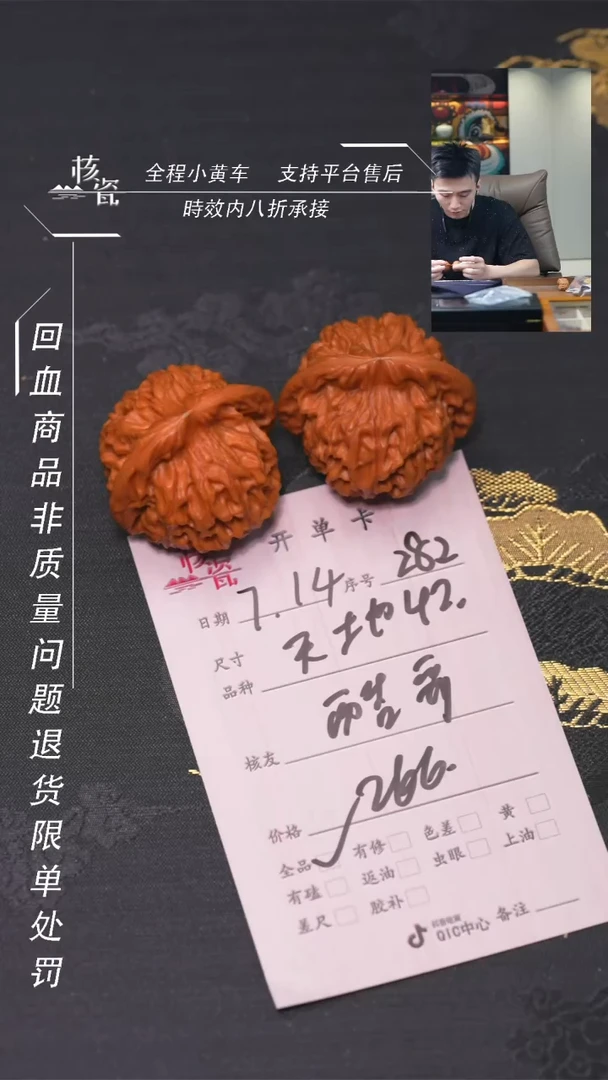 核瓷
全程小黄车 支持平台售后
時效内八折承接
回血商品非质量问题退货限单处罚
核瓷
开单卡
日期 7.14 序号 282
尺寸 天地42.
品种
核友 酷哥
价格 266.
全品 ✓ 有修 色差 黄
有磕 返油 虫眼 上油
差尺 胶补
QIC中心 备注